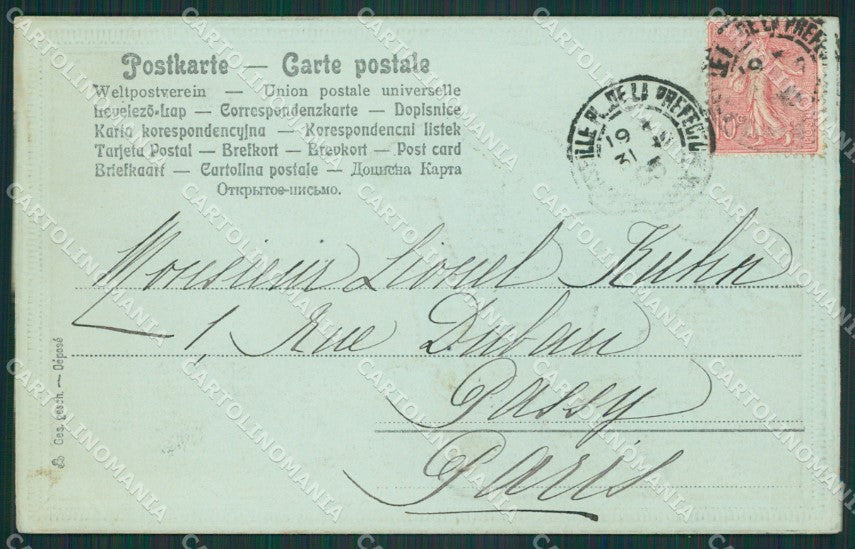 Postkarte — Carte postale
Weltpostverein — Union postale universelle
Levelező-Lap — Correspondenzkarte — Dopisnice
Karta korespondencyjna — Korespondencni listek
Tarjeta Postal — Brefkort — Brevkort — Post card
Briefkaart — Cartolina postale — Дописна Карта
Открытое-письмо.
DE LA PREFEC
19
31
10c
Monsieur Lionel Kuhn
1, Rue Duban
Passy
Paris
Ges. gesch. — Déposé
CARTOLINOMANIA